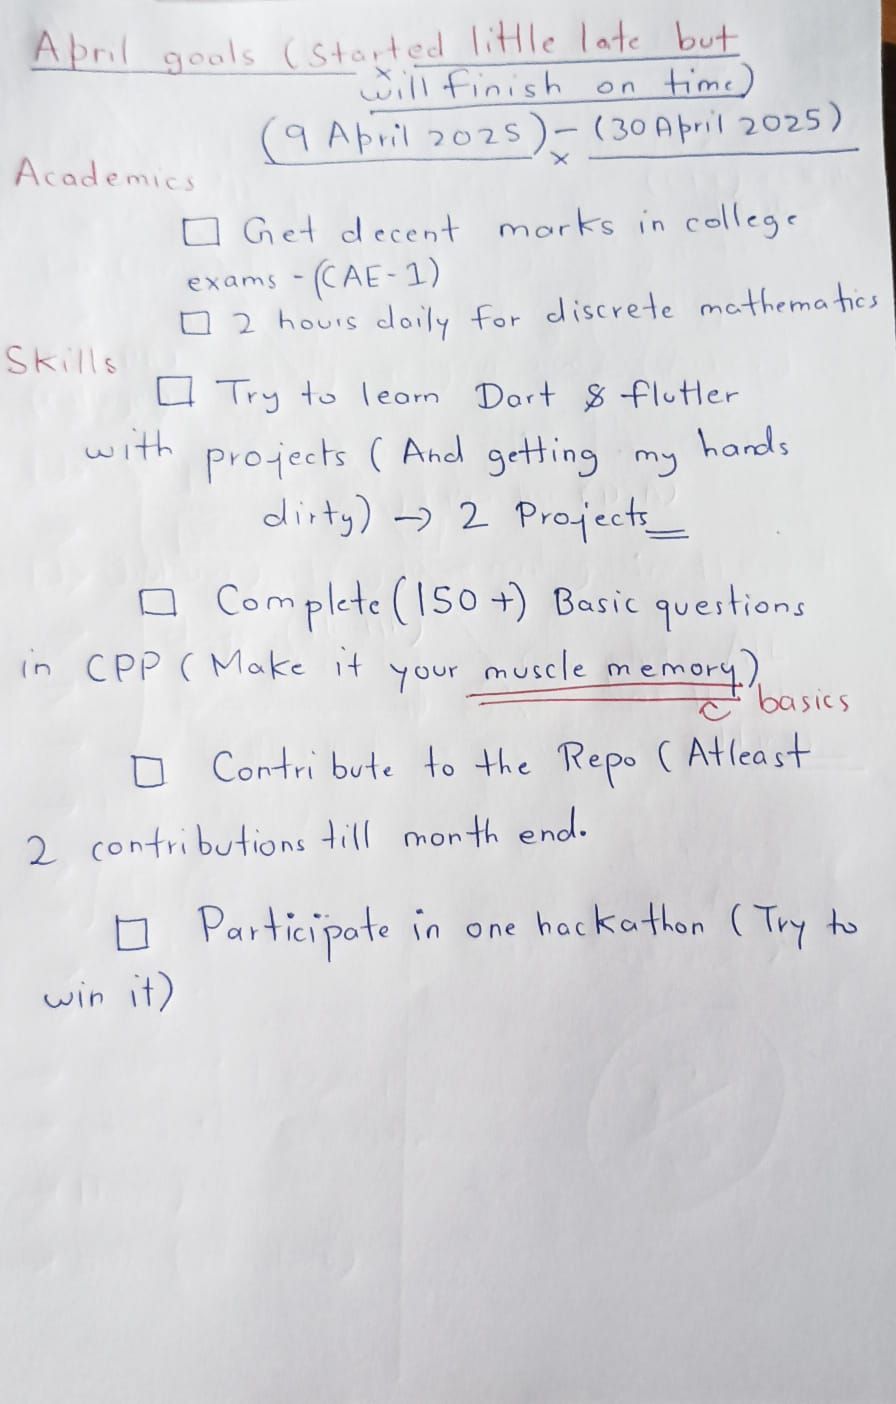 April goals (Started little late but
will finish on time)
(9 April 2025) - (30 April 2025)
Academics
Get decent marks in college
exams - (CAE-1)
2 hours daily for discrete mathematics
Skills
Try to learn Dart & flutter
with projects (And getting my hands
dirty) → 2 Projects
Complete (150+) Basic questions
in CPP (Make it your muscle memory)
basics
Contribute to the Repo (Atleast
2 contributions till month end.
Participate in one hackathon (Try to
win it)